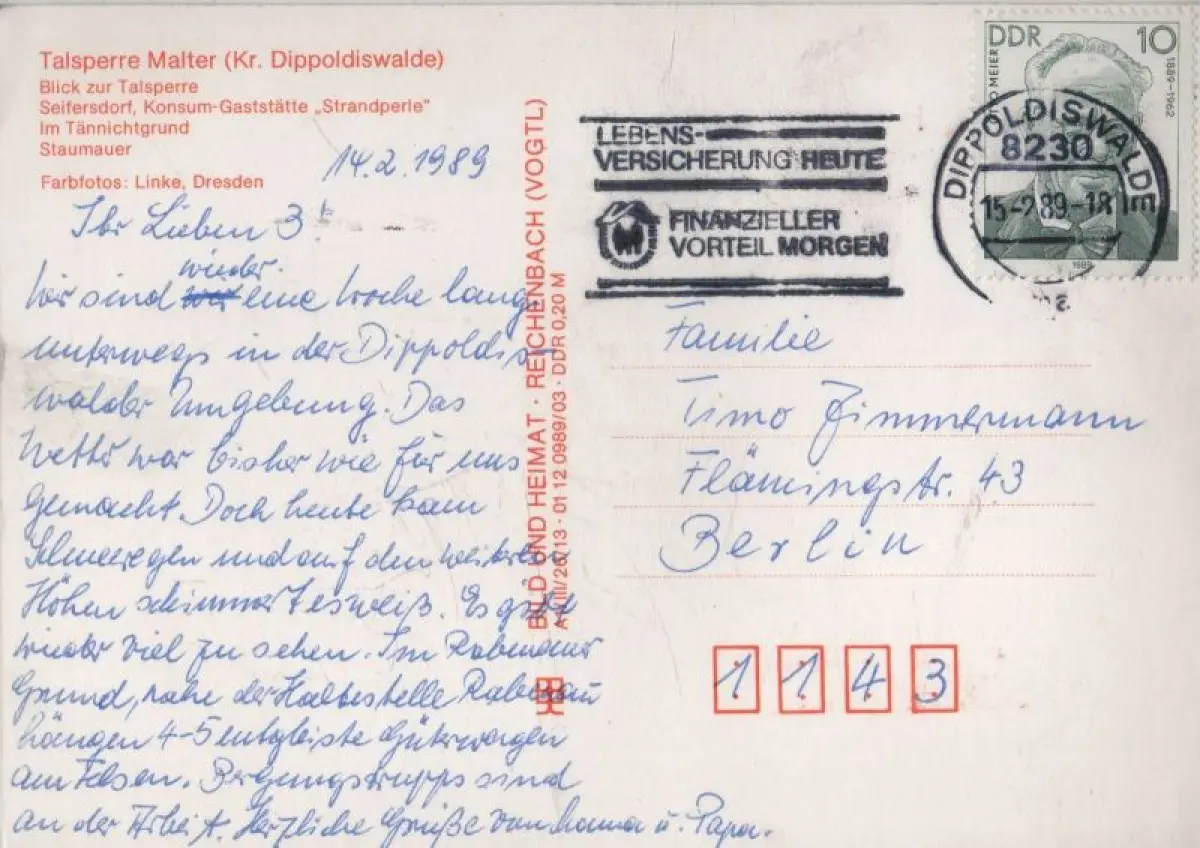 Talsperre Malter (Kr. Dippoldiswalde)
Blick zur Talsperre
Seifersdorf, Konsum-Gaststätte „Strandperle"
Im Tännichtgrund
Staumauer
Farbfotos: Linke, Dresden
14.2.1989
Ihr Lieben 3!
wieder
Wir sind eine Woche lang
unterwegs in der Dippoldis-
walder Umgebung. Das
Wetter war bisher wie für uns
gemacht. Doch heute kam
Schneeregen und auf den weiteren
Höhen schimmert es weiß. Es gibt
wieder viel zu sehen. Im Rabenauer
Grund, nahe der Haltestelle Rabenau
hängen 4-5 entgleiste Güterwagen
am Felsen. Bergungstrupps sind
an der Arbeit. Herzliche Grüße von Mama u. Papa.
BILD UND HEIMAT · REICHENBACH (VOGTL)
III/26/13 · 01 12 0989/03 · DDR 0,20 M
LEBENS-
VERSICHERUNG HEUTE
FINANZIELLER
VORTEIL MORGEN
DDR 10
MEIER 1889-1962
1989
DIPPOLDISWALDE
8230
15-2.89.-18
Familie
Timo Zimmermann
Flämingstr. 43
Berlin
1143